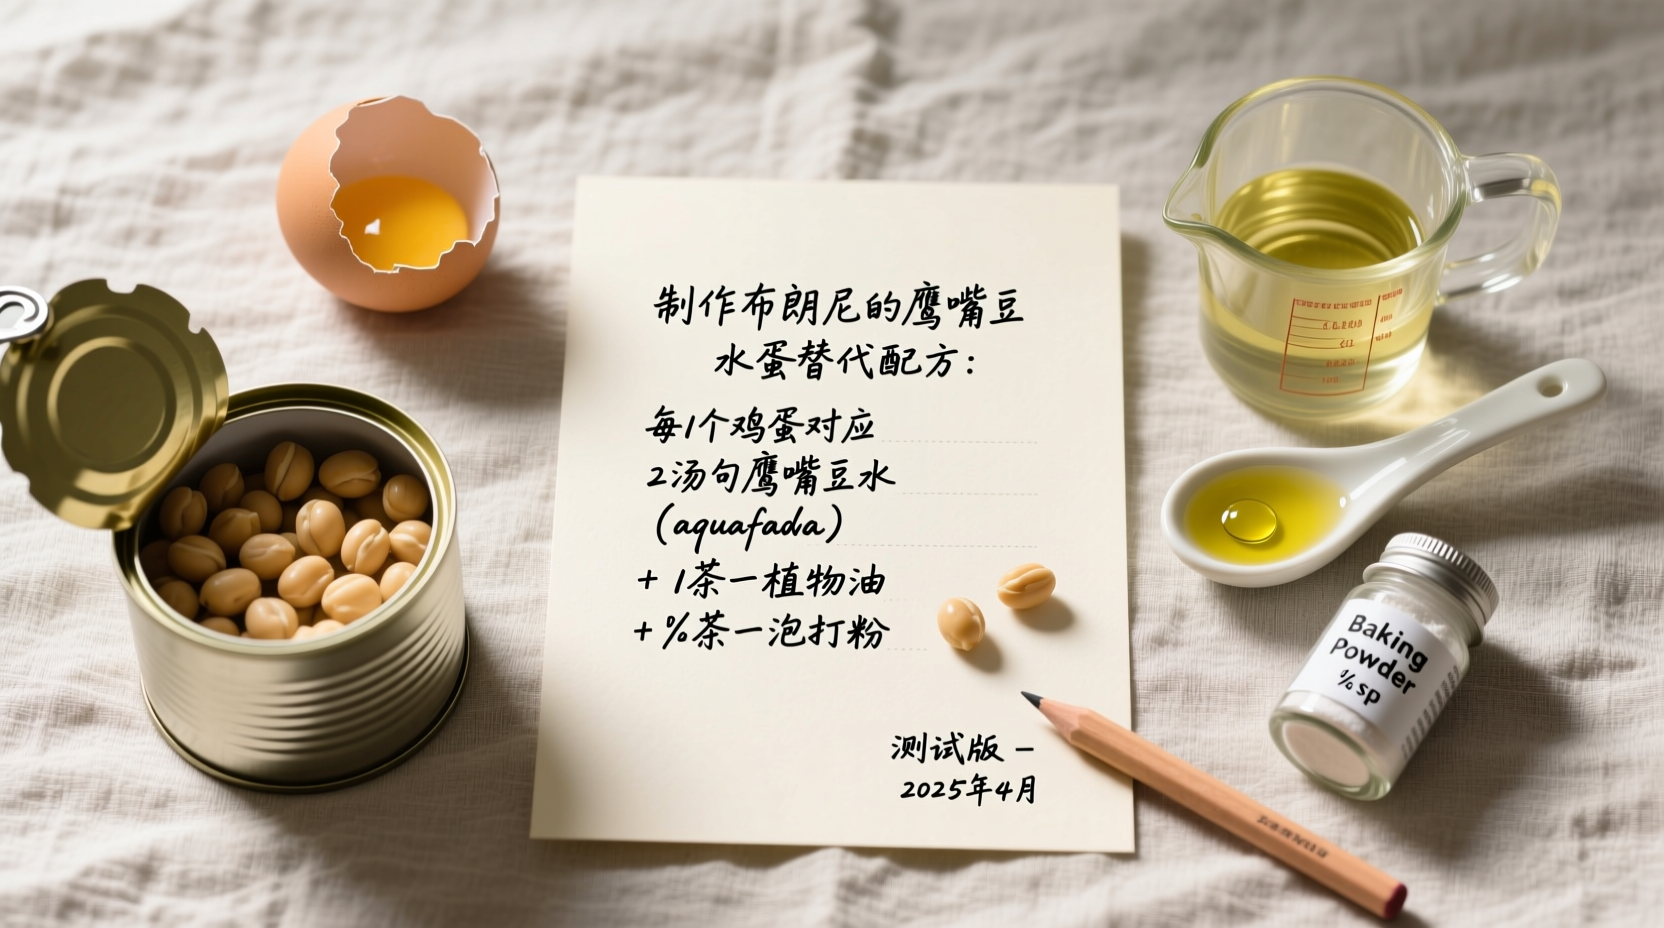 制作布朗尼的鹰嘴豆
水蛋替代配方：
每1个鸡蛋对应
2汤句鹰嘴豆水
(aquafada)
+ 1茶一植物油
+ %茶一泡打粉
测试版 -
2025年4月
Baking
Powder
% sp